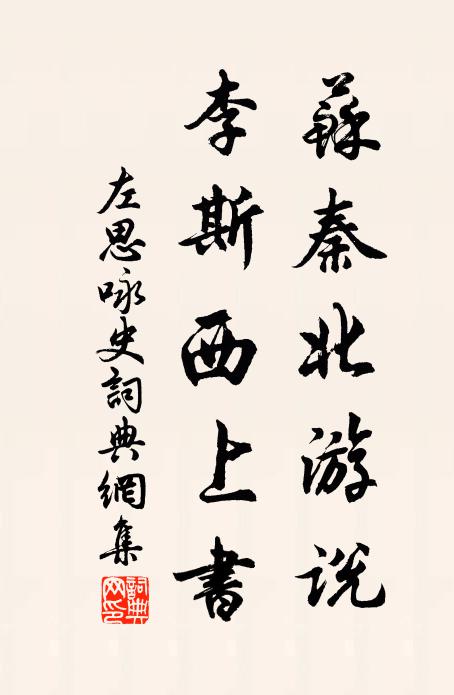 蘇秦北游説
李斯西上書
左思咏史詞典網集
詞典網印